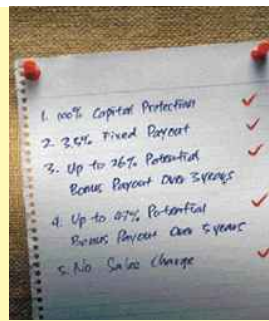 1. 100% Capital Protection
2. 3.5% Fixed Payout
3. Up to 26% Potential
Bonus Payout Over 3 years
4. Up to 47% Potential
Bonus Payout Over 5 years
5. No Sales Charge